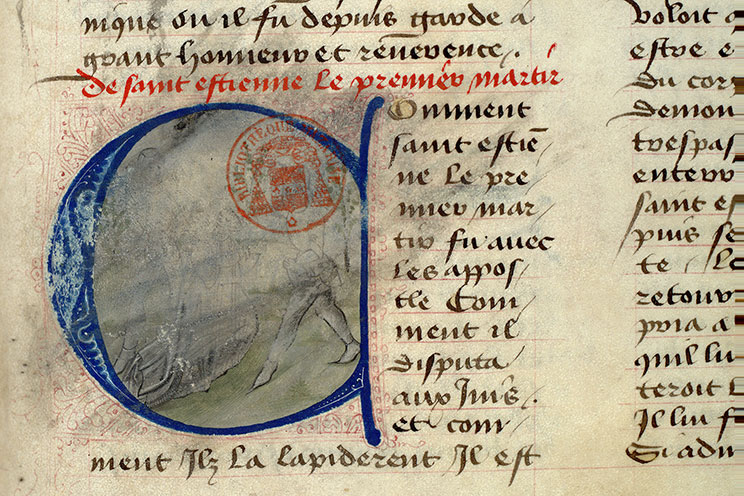 nique ou il fu depuis garde a
grant honneur et reuerence.
De saint estienne le premier martir
Comment
saint estiē
ne le pre
mier mar
tir fu auec
les appos
tle Com
ment il
disputa
aux Juifs.
et com
ment Ilz la lapiderent Il est
voloit
estre e
du cor
demon
trespas
enterr
saint es
puis se
te. Le
retour
pria a
quil lu
teroit l
Il lui f
Si adu